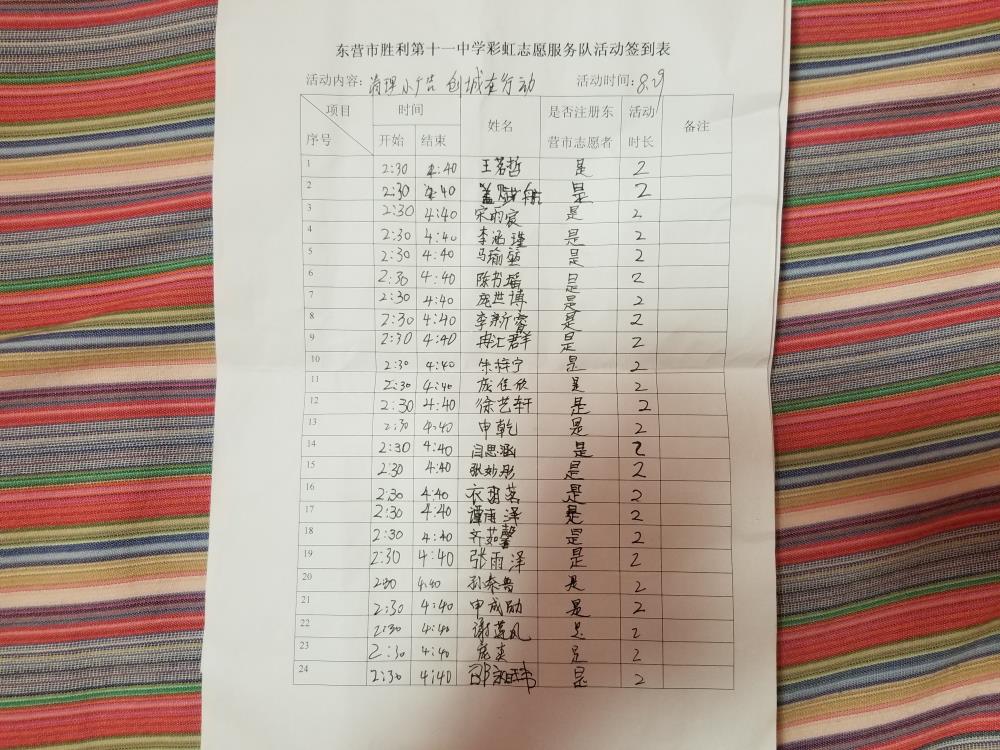 东营市胜利第十一中学彩虹志愿服务队活动签到表
活动内容: 清理小广告 创城在行动 活动时间: 8.29
项目 时间 姓名 是否注册东 活动 备注
序号 开始 结束 营市志愿者 时长
1 2:30 4:40 王茗哲 是 2
2 2:30 4:40 盖 航 是 2
3 2:30 4:40 宋雨宸 是 2
4 2:30 4:40 李涵瑾 是 2
5 2:30 4:40 马瑜 是 2
6 2:30 4:40 陈书瑶 是 2
7 2:30 4:40 庞世博 是 2
8 2:30 4:40 李新睿 是 2
9 2:30 4:40 冉汇群 是 2
10 2:30 4:40 朱梓宁 是 2
11 2:30 4:40 成佳欣 是 2
12 2:30 4:40 徐艺轩 是 2
13 2:30 4:40 申乾 是 2
14 2:30 4:40 闫思涵 是 2
15 2:30 4:40 张妙彤 是 2
16 2:30 4:40 衣 茗 是 2
17 2:30 4:40 谭雨泽 是 2
18 2:30 4:40 齐茹馨 是 2
19 2:30 4:40 张雨泽 是 2
20 2:30 4:40 孙泰鲁 是 2
21 2:30 4:40 申成勋 是 2
22 2:30 4:40 谢 凤 是 2
23 2:30 4:40 庞爽 是 2
24 2:30 4:40 邵 是 2